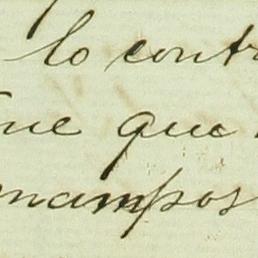 lo contr
ne que
mampos